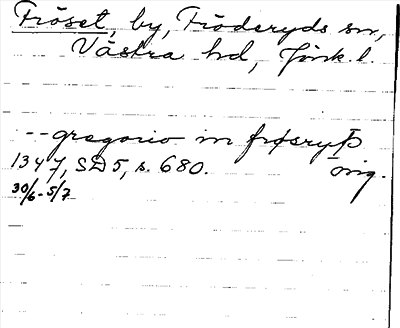 Fröset, by, Fröderyds sn,
Västra hd, Jönk. l.
-- gregorio in frøsryþ
1347, SD 5, s. 680. orig.
30/6 - 5/7